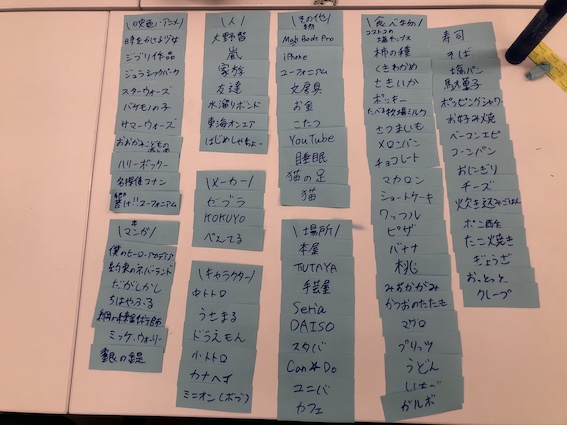 \映画・アニメ/
時をかける少女
ジブリ作品
ジュラシックパーク
スターウォーズ
バケモノの子
サマーウォーズ
おおかみこどもの
ハリーポッター
名探偵コナン
響け!!ユーフォニアム
\マンガ/
僕のヒーローアカデミア
約束のネバーランド
だがしかし
ちはやふる
ミッケ、ウォーリー
銀の匙
\人/
大野智
嵐
家族
友達
水溜りボンド
東海オンエア
はじめしゃちょー
\メーカー/
ゼブラ
KOKUYO
ぺんてる
\キャラクター/
中トトロ
うさまる
ドラえもん
小トトロ
カナヘイ
ミニオン(ボブ)
\その他/
物
Mac Book Pro
iPhone
ユーフォニアム
文房具
お金
こたつ
YouTube
睡眠
猫の足
猫
\場所/
本屋
TUTAYA
手芸屋
Seria
DAISO
スタバ
Can★Do
ユニバ
カフェ
\食べ物/
コストコの
塩チップス
柿の種
くきわかめ
さきいか
ポッキー
たべる牧場ミルク
さつまいも
メロンパン
チョコレート
マカロン
ショートケーキ
ワッフル
ピザ
バナナ
桃
みおかがみ
かつおのたたき
マグロ
プリッツ
うどん
ガルボ
寿司
そば
塩パン
駄菓子
ポッピングシャワー
お好み焼
ベーコンエピ
コーンパン
おにぎり
チーズ
炊き込みごはん
ポン酢
たこ焼き
ぎょうざ
おっとっと
クレープ